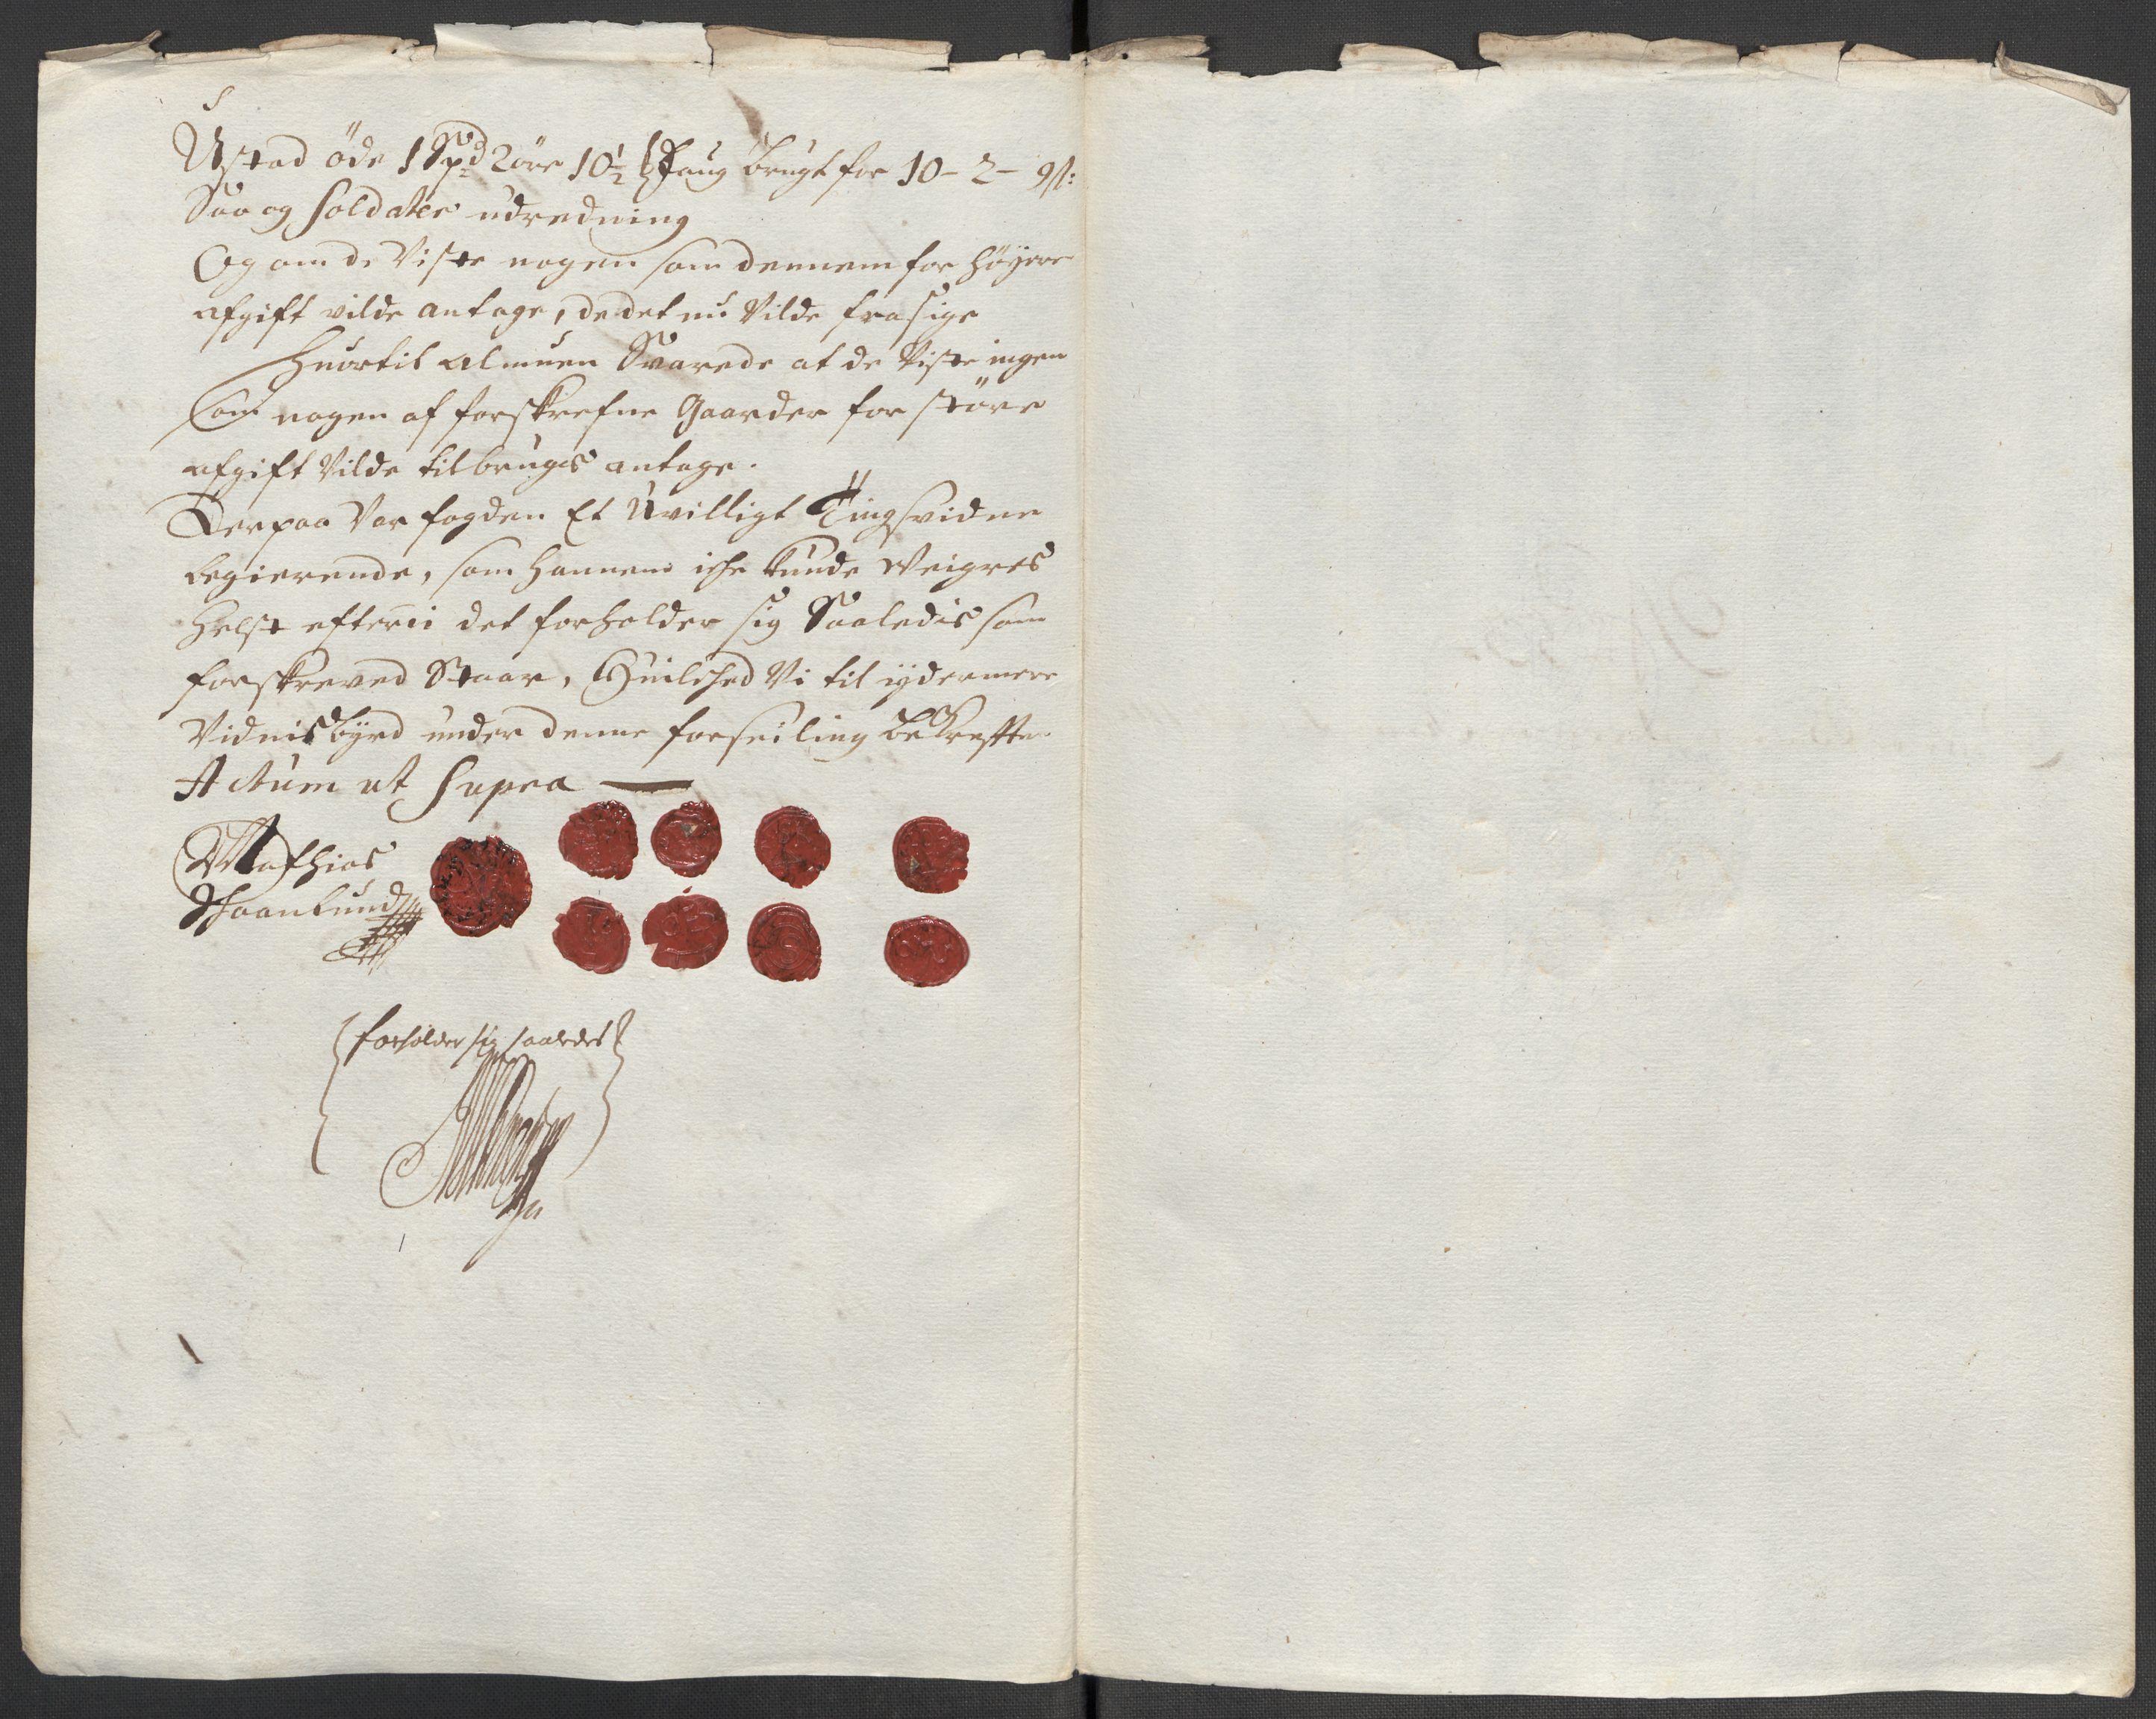 Ustad öde 1 Spd 2 öre 10½ laug brugt for 10 - 2 - 9 s:
Saa og Soldater udredning
Og om de Viste nogen som dennem for höyere
afgift vilde antage, de det nu Vilde frasige
Huortil Almuen Svarede at de Viste ingen
Som nogen af forskrefne Gaarder for störe
afgift Vilde til brugs antage.
Derpaa Var fogden Et Uvilligt Tingsvidne
begierende, som hannem iche kunde Veigres
helst efterdi det forholder sig Saaledis som
forskreved Staar, Huilched Vi til ydermere
Vidnisbyrd under denne forseiling bekreffter
Actum ut Supra
Mathias
Schaanlund
forholder sig saaledes